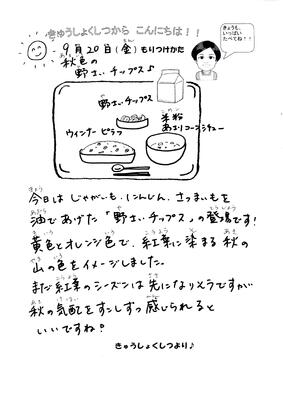 きゅうしょくしつから こんにちは!!
きょうも、
いっぱい
たべてね!!
9月20日(金)もりつけかた
秋色の
野菜チップス♪
野菜チップス
米粉
あさりコーンシチュー
ウィンナーピラフ
今日は じゃがいも、にんじん、さつまいもを
油であげた「野菜チップス」の登場です!
黄色とオレンジ色で、紅葉に染まる秋の
山の色をイメージしました。
まだ紅葉のシーズンは先になりそうですが
秋の気配をすこしずつ感じられると
いいですね?
きゅうしょくしつより♪